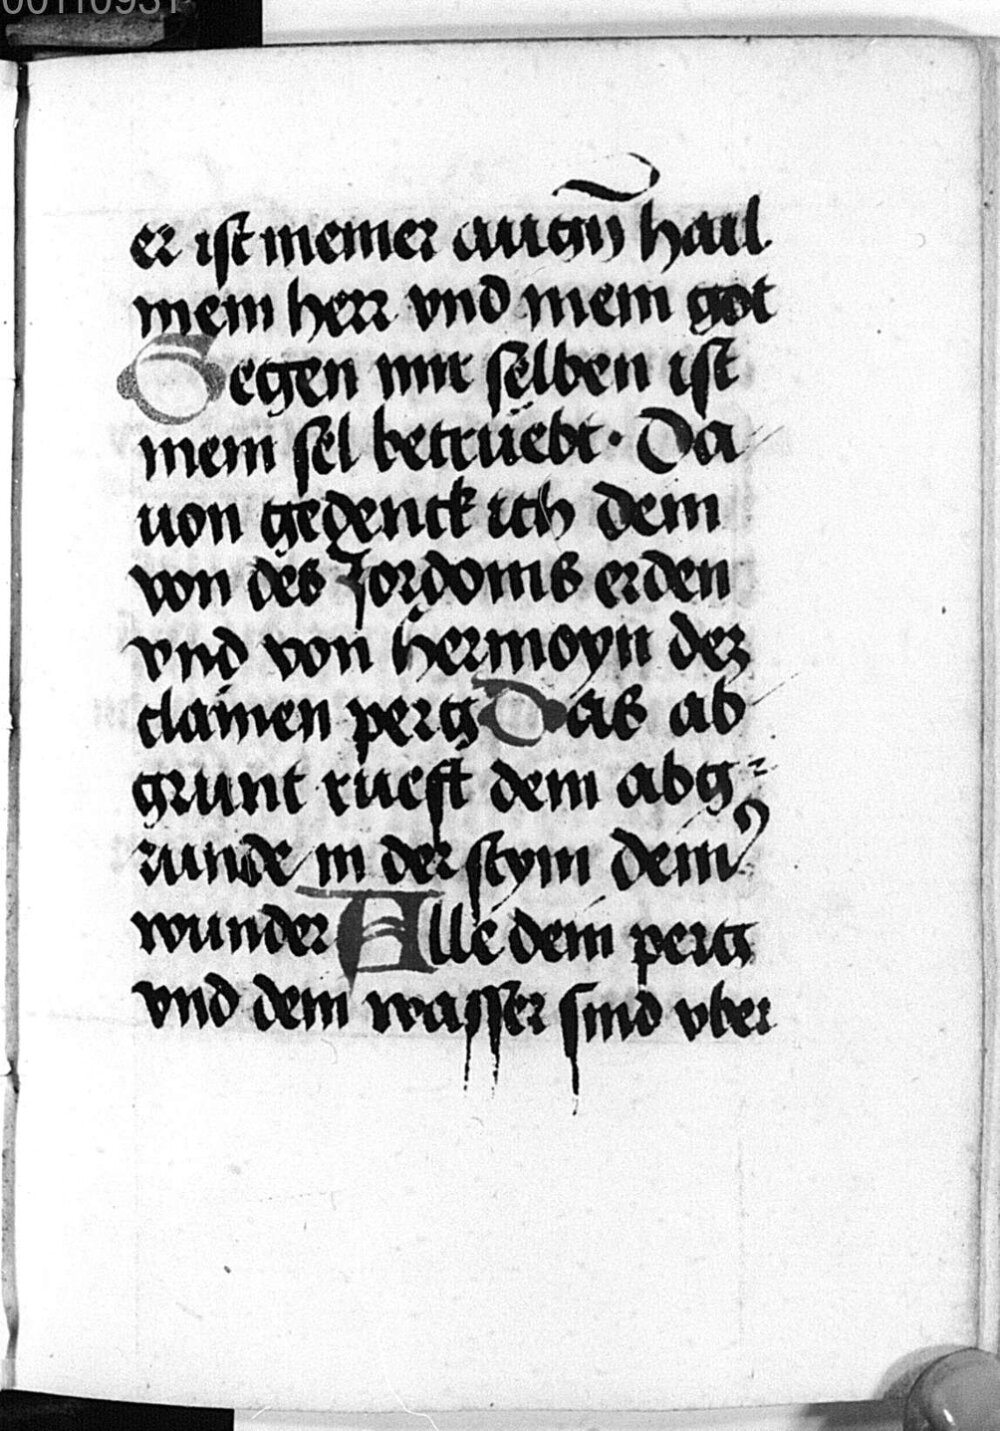 00110931
er ist meiner augñ hail
mein herr vnd mein got
Gegen mir selben ist
mein sel betrüebt · Da
uon gedenck ich dein
von des Jordonis erden
vnd von hermoyn dez
clainen perg Das ab
grunt rueft dem abg⸗
runde in der stym deiner
wunder Alle dein perg
vnd dein wasser sind vber